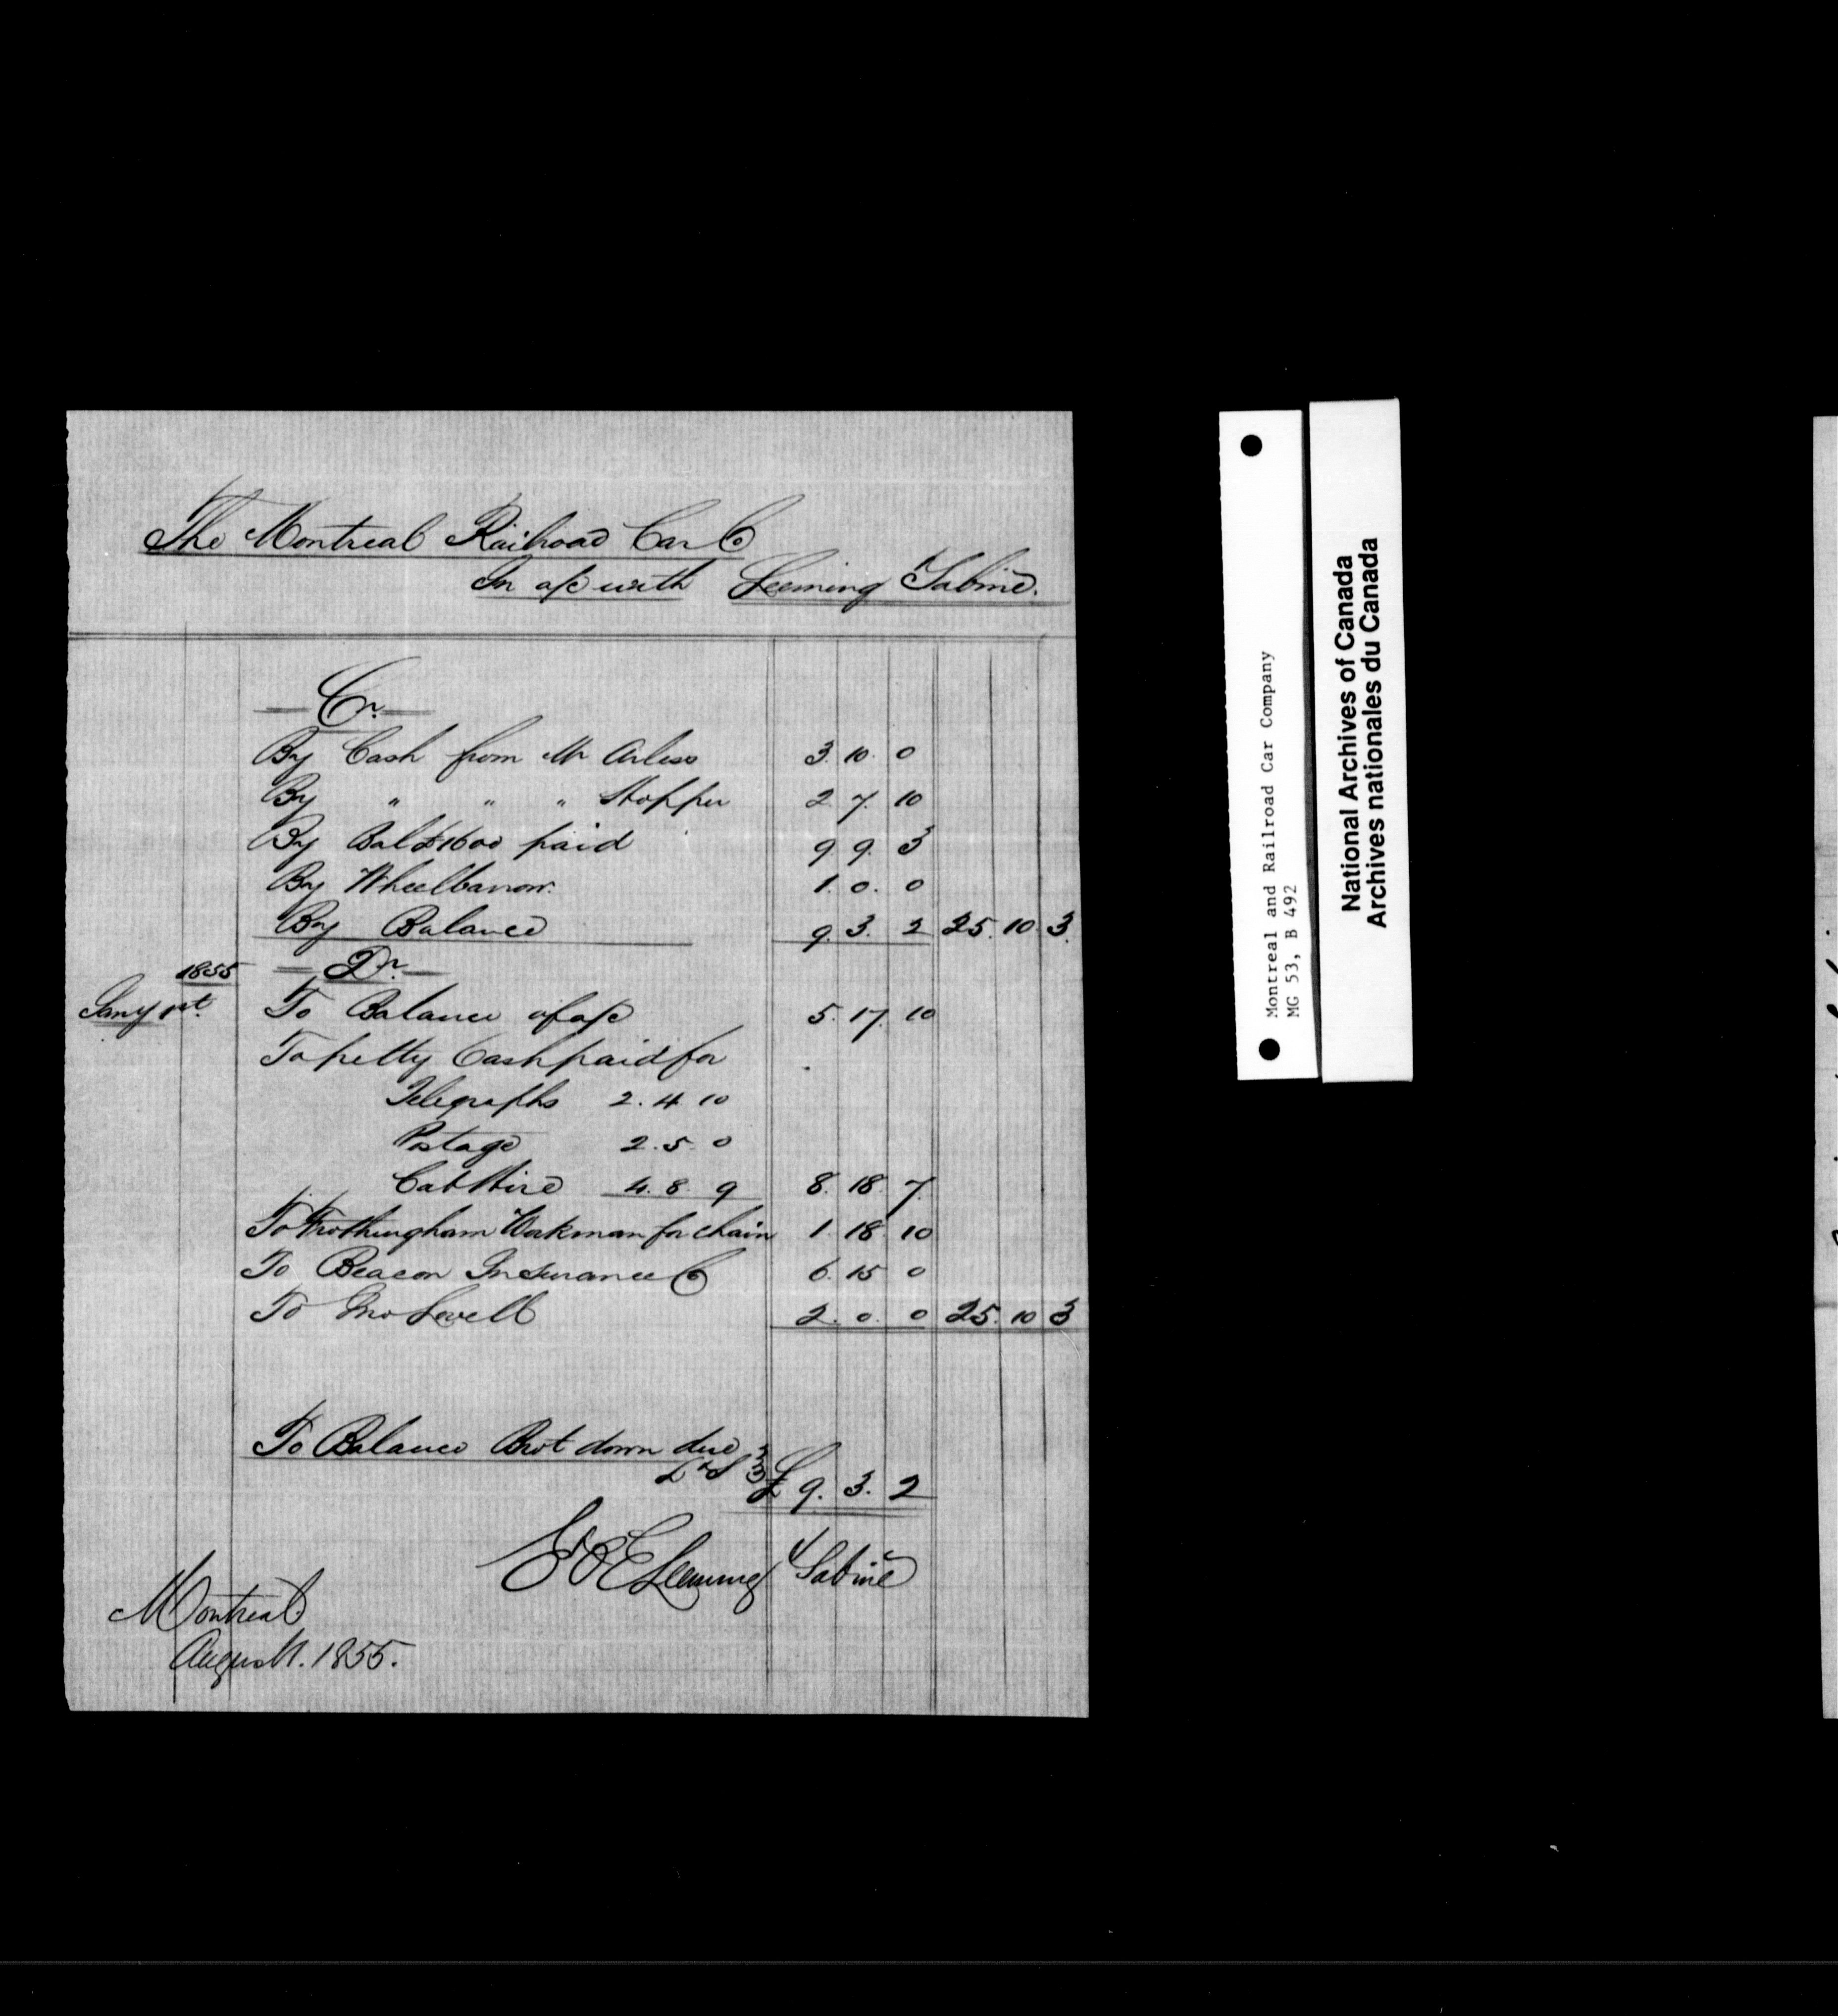 The Montreal Railroad Car Co
In a/c with Leeming & Sabine.
Cr.
By Cash from Mr Arless 3. 10. 0
By " " " Hopper 2 7. 10
By Bal £1600 paid 9 9. 3
By Wheelbarrow. 1. 0. 0
By Balance 9. 3. 2 25. 10. 3.
1855 Dr.
Jany 1st. To Balance of a/c 5. 17. 10
To petty Cash paid for
Telegraphs 2. 4. 10
Postage 2. 5. 0
Cab Hire 4. 8. 9 8. 18. 7.
To Frothingham Workman for chain 1. 18. 10
To Beacon Insurance Co 6. 15 0
To Jno Lovell 2. 0. 0 25. 10 3
To Balance Brot down due
L & S £ 9. 3. 2
Leeming & Sabine
Montreal
August 1. 1855.
Montreal and Railroad Car Company
MG 53, B 492
National Archives of Canada
Archives nationales du Canada